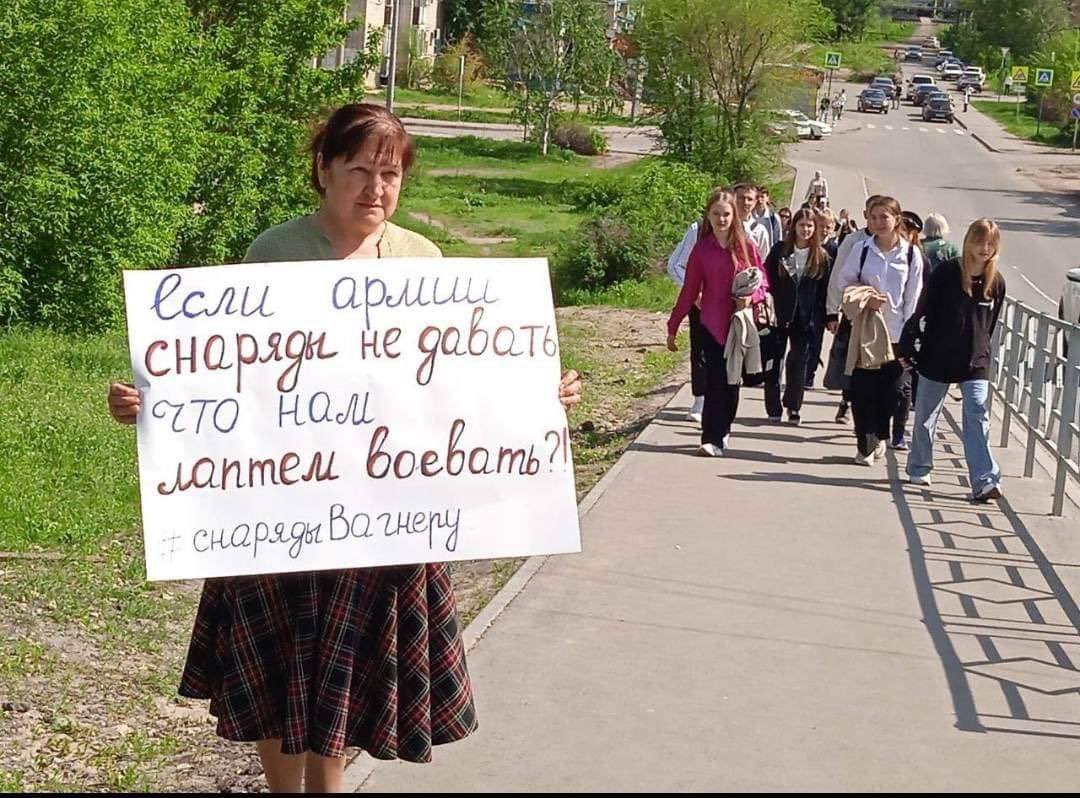 если армии
снаряды не давать
что нам
лаптем воевать?!
#снарядыВагнеру